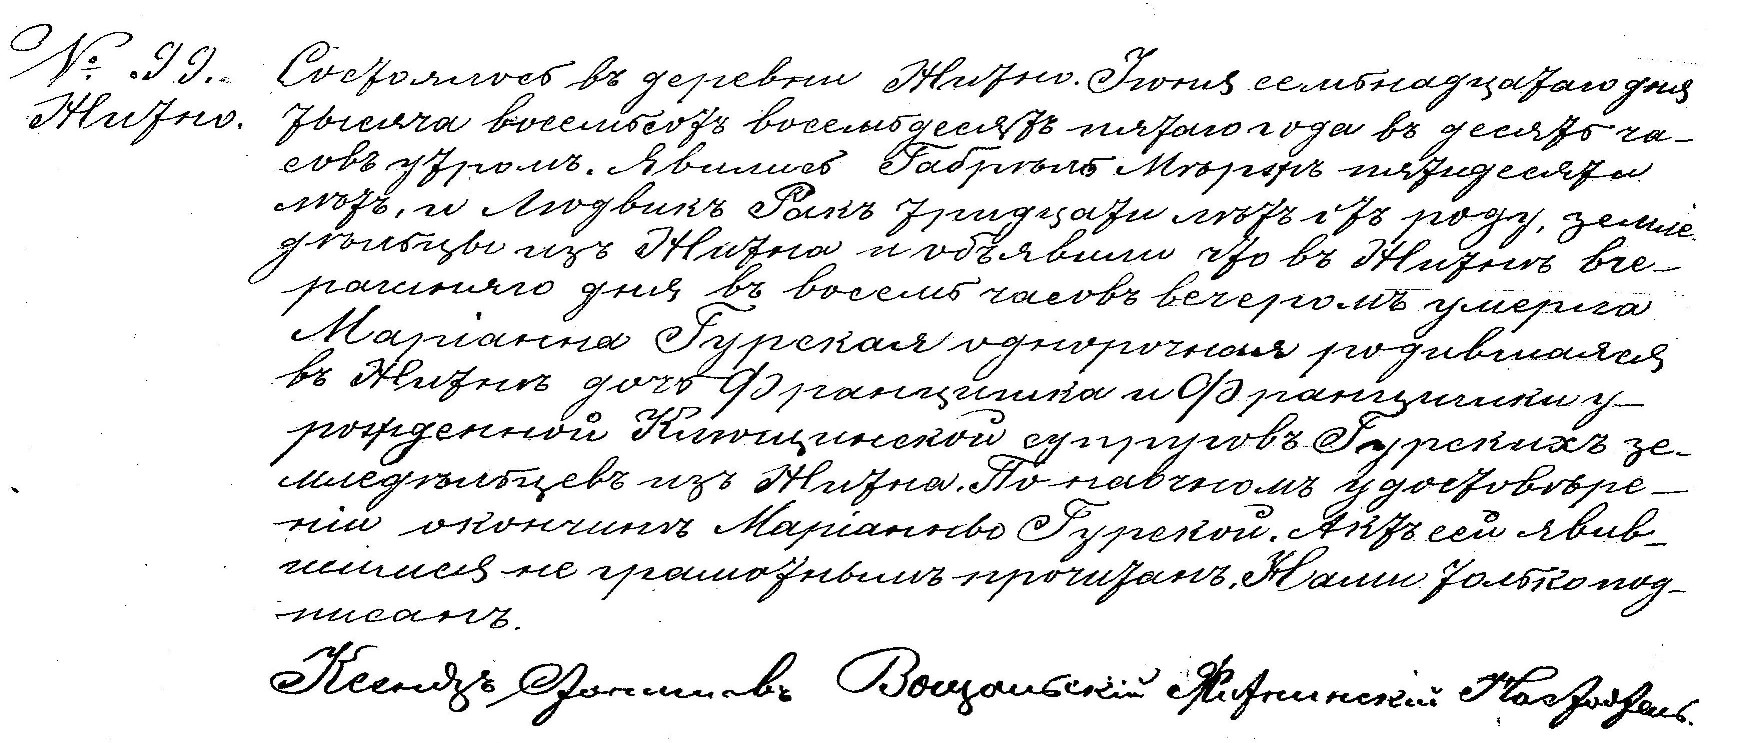 № 99.
Житно.
Состоялось въ деревни Житно. Іюня семьнадцатаго дня
тысяча восемьсотъ восемьдесятъ пятаго года въ десять ча-
совъ утромъ. Явились Габрыель пятидесяти
лѣтъ, и Людвикъ Ракъ тридцати лѣтъ отъ роду, земле
дѣльцы изъ Житна и объявили что въ Житнѣ вче-
рашняго дня въ восемь часовъ вечеромъ умерла
Маріанна Гурская однорочная родившаяся
въ Житнѣ дочь Францишка и Францишки у-
рожденной супруговъ Гурскихъ зе-
мледѣльцевъ изъ Житна. По наочномъ удостовѣре-
ніи окончинѣ Маріанны Гурской. Актъ сей явив-
шимся не грамотнымъ прочитанъ. Нами только под-
писанъ.
Ксендзъ Житнинскій Настоятель.